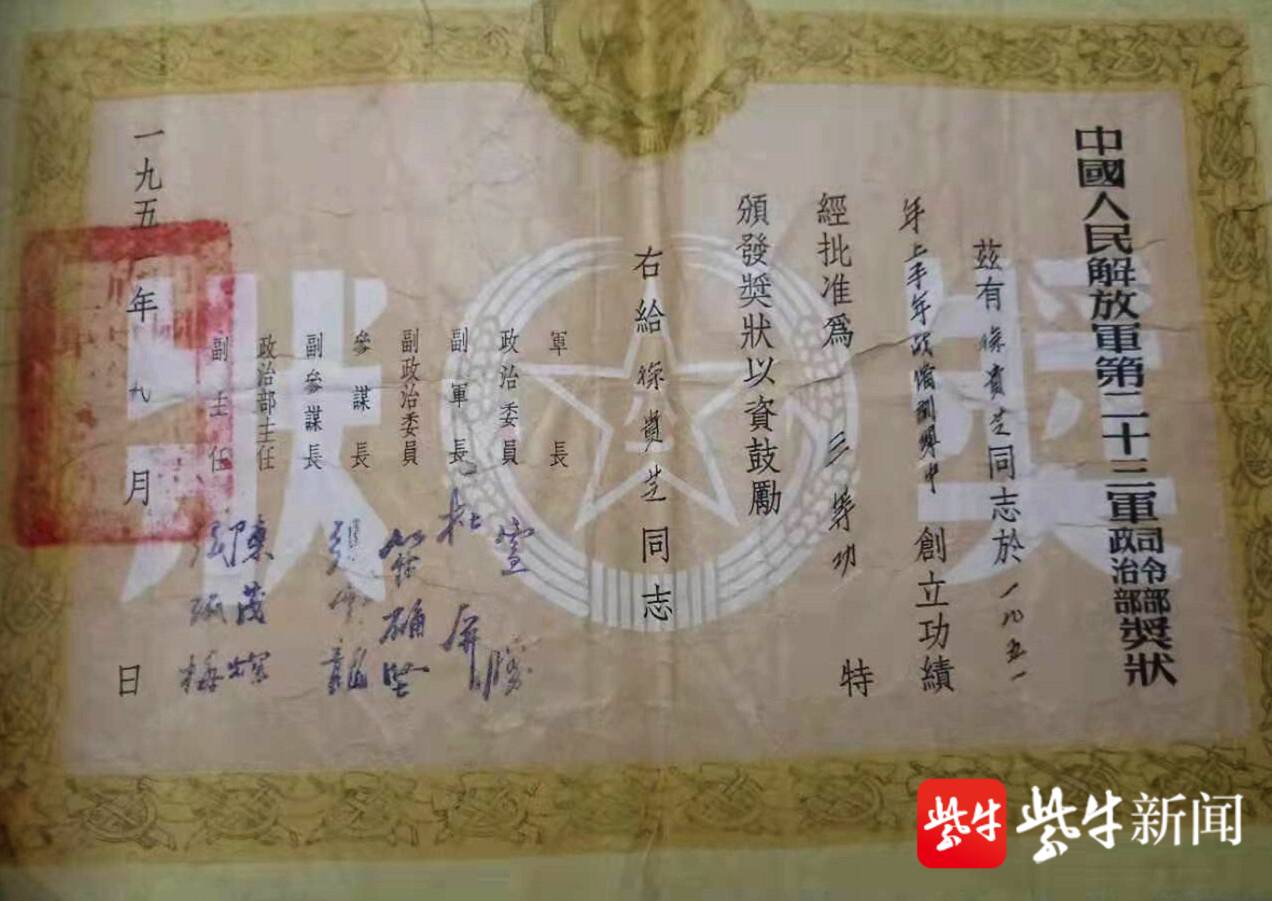 中國人民解放軍第二十三軍司令部政治部獎狀
茲有徐貴芝同志於一九五一
年上半年中創立功績
經批准爲三等功 特
頒發獎狀以資鼓勵
右給徐貴芝同志
軍長
政治委員
副軍長 杜屏
副政治委員
參謀長
副參謀長 張雲龍
政治部主任 陳茂輝
副主任
一九五一年九月 日
獎狀
八一
紫牛
紫牛新闻